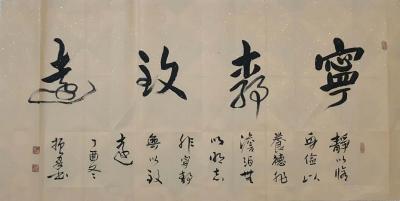 寧靜致遠
靜以修
身儉以
養德非
澹泊無
以明志
非寧靜
無以致
遠
丁酉冬